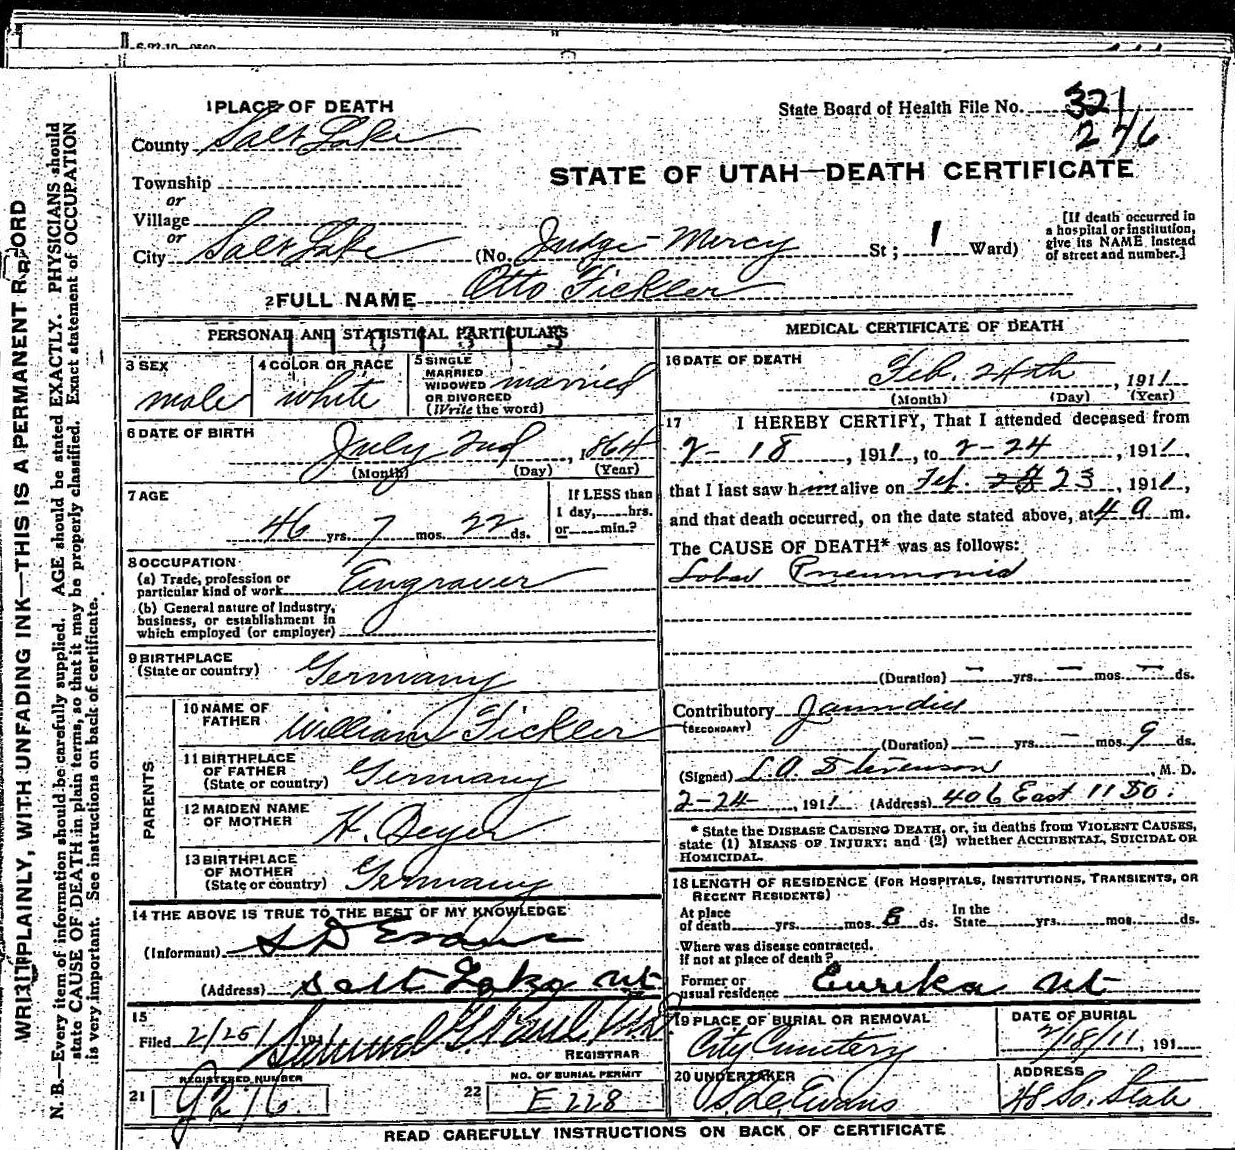 1 PLACE OF DEATH
State Board of Health File No. 321
276
County Salt Lake
STATE OF UTAH—DEATH CERTIFICATE
Township
or
Village
or
City Salt Lake (No. Judge Mercy St; 1 Ward)
[If death occurred in a hospital or institution, give its NAME instead of street and number.]
2 FULL NAME Otto Fickler
PERSONAL AND STATISTICAL PARTICULARS
3 SEX
male
4 COLOR OR RACE
white
5 SINGLE
MARRIED
WIDOWED
OR DIVORCED
(Write the word)
married
6 DATE OF BIRTH
July 2nd, 1864
(Month) (Day) (Year)
7 AGE
46 yrs. 7 mos. 22 ds.
If LESS than
1 day, hrs.
or min.?
8 OCCUPATION
(a) Trade, profession or
particular kind of work Engraver
(b) General nature of Industry,
business, or establishment in
which employed (or employer)
9 BIRTHPLACE
(State or country) Germany
PARENTS
10 NAME OF
FATHER William Fickler
11 BIRTHPLACE
OF FATHER
(State or country) Germany
12 MAIDEN NAME
OF MOTHER H. Beyer
13 BIRTHPLACE
OF MOTHER
(State or country) Germany
14 THE ABOVE IS TRUE TO THE BEST OF MY KNOWLEDGE
(Informant) S D Evans
(Address) Salt Lake Ut
15
Filed 2/25/ 191 Samuel G. Paul
REGISTRAR
REGISTERED NUMBER
21 G276
NO. OF BURIAL PERMIT
22 E 228
MEDICAL CERTIFICATE OF DEATH
16 DATE OF DEATH
Feb. 24th, 1911
(Month) (Day) (Year)
17 I HEREBY CERTIFY, That I attended deceased from
2-18, 1911, to 2-24, 1911,
that I last saw him alive on Feb. 23, 1911,
and that death occurred, on the date stated above, at 4 a m.
The CAUSE OF DEATH* was as follows:
Lobar Pneumonia
(Duration) — yrs. — mos. — ds.
Contributory Jaundice
(SECONDARY)
(Duration) — yrs. — mos. 9 ds.
(Signed) L A Stevenson, M. D.
2-24, 1911 (Address) 406 East 11 So.
* State the DISEASE CAUSING DEATH, or, in deaths from VIOLENT CAUSES,
state (1) MEANS OF INJURY; and (2) whether ACCIDENTAL, SUICIDAL OR
HOMICIDAL.
18 LENGTH OF RESIDENCE (FOR HOSPITALS, INSTITUTIONS, TRANSIENTS, OR
RECENT RESIDENTS)
At place
of death yrs. mos. 8 ds.
In the
State yrs. mos. ds.
Where was disease contracted,
if not at place of death?
Former or
usual residence Eurika Ut
19 PLACE OF BURIAL OR REMOVAL
City Cemetery
DATE OF BURIAL
2/18/11, 191
20 UNDERTAKER
S. D. Evans
ADDRESS
48 So. State
READ CAREFULLY INSTRUCTIONS ON BACK OF CERTIFICATE
WRITE PLAINLY, WITH UNFADING INK—THIS IS A PERMANENT RECORD
N. B.—Every item of information should be carefully supplied. AGE should be stated EXACTLY. PHYSICIANS should
state CAUSE OF DEATH in plain terms, so that it may be properly classified. Exact statement of OCCUPATION
is very important. See instructions on back of certificate.